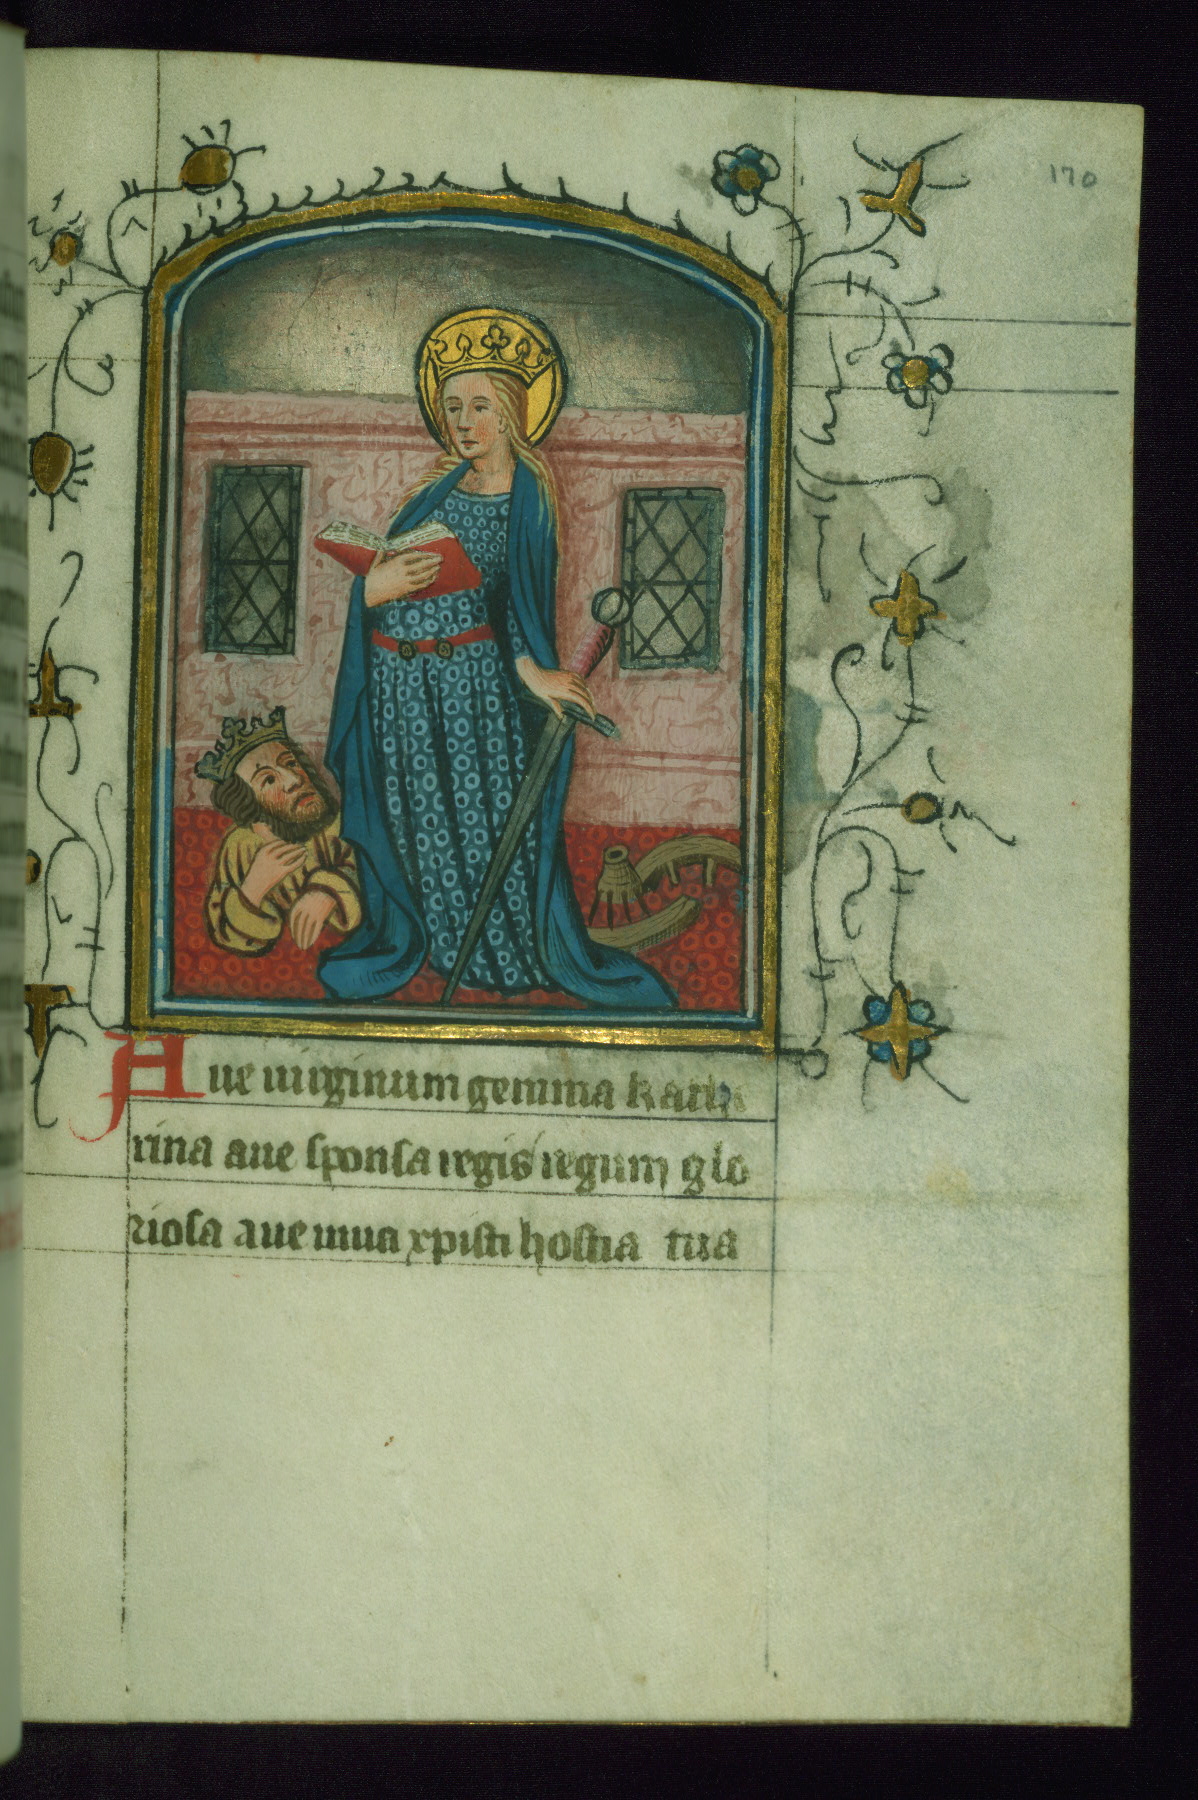 170
Aue uirginum gemma kathe
rina aue sponsa regis regum glo
riosa aue uiua xpisti hostia tua